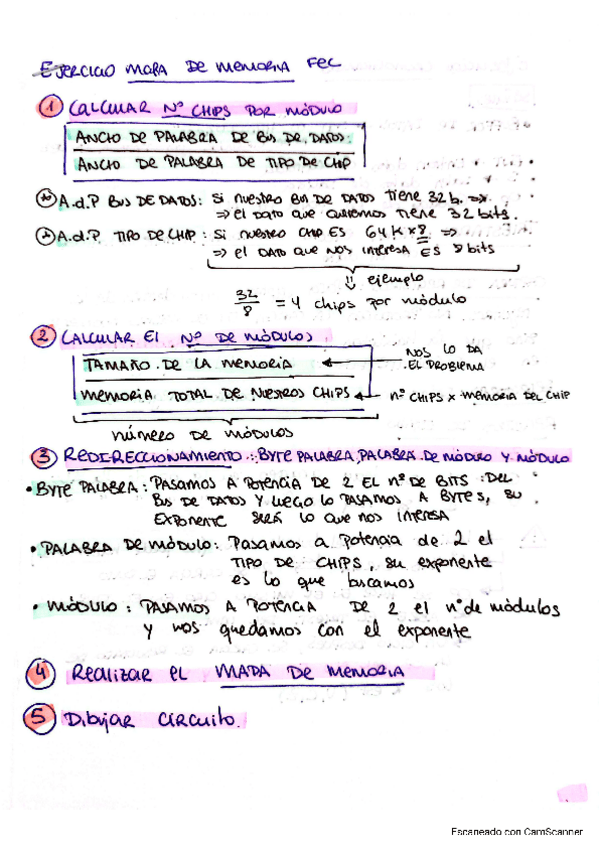 EJERCICIO MAPA DE MEMORIA FEC
1 CALCULAR Nº CHIPS POR MÓDULO
ANCHO DE PALABRA DE BUS DE DATOS:
ANCHO DE PALABRA DE TIPO DE CHIP
A.d.P BUS DE DATOS: Si nuestro BUS DE DATOS tiene 32 b. ⇒
⇒ el DATO que queremos tiene 32 bits.
A.d.P. TIPO DE CHIP: Si nuestro CHIP ES 64K x 8 ⇒
⇒ el DATO que NOS interesa ES 8 bits
⇓ ejemplo
32/8 = 4 chips por módulo
2 CALCULAR El Nº DE MÓDULOS
TAMAÑO DE LA MEMORIA ← NOS LO DA EL PROBLEMA
MEMORIA TOTAL DE NUESTROS CHIPS ← nº CHIPS x MEMORIA DEL CHIP
número DE MÓDULOS
3 REDIRECCIONAMIENTO: BYTE PALABRA, PALABRA DE MÓDULO Y MÓDULO
• BYTE PALABRA: PASAMOS A POTENCIA DE 2 EL nº DE BITS DEL
BUS DE DATOS Y LUEGO LO PASAMOS A BYTES, SU
EXPONENTE SERÁ LO QUE NOS INTERESA
• PALABRA DE MÓDULO: Pasamos a Potencia de 2 el
TIPO DE CHIPS, su exponente
es lo que buscamos
• MÓDULO: PASAMOS A POTENCIA DE 2 el nº de módulos
y nos quedamos con el exponente
4 Realizar el MAPA DE MEMORIA
5 Dibujar CIRCUITO.
Escaneado con CamScanner